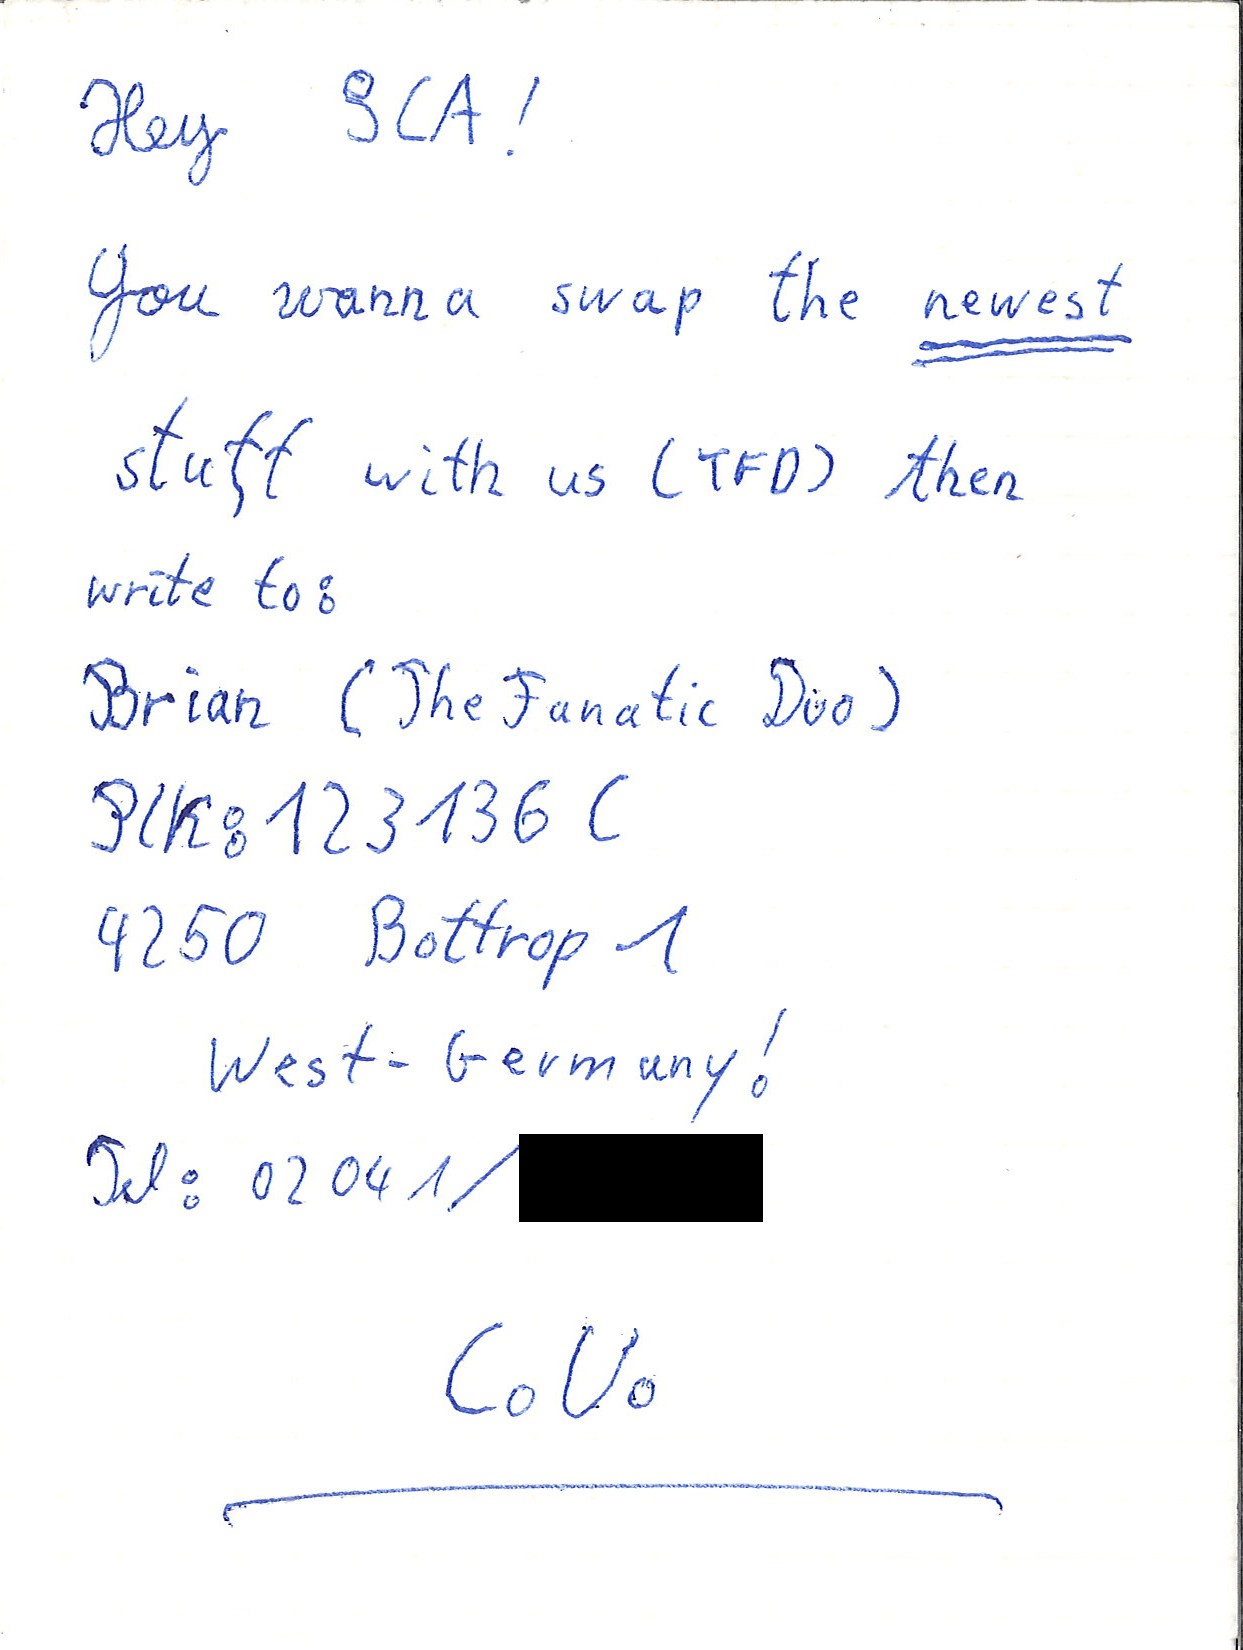 Hey SCA!
You wanna swap the newest
stuff with us (TFD) then
write to:
Brian (The Fanatic Duo)
Plk: 123136 C
4250 Bottrop 1
West-Germany!
Tel: 02041/
C.U.